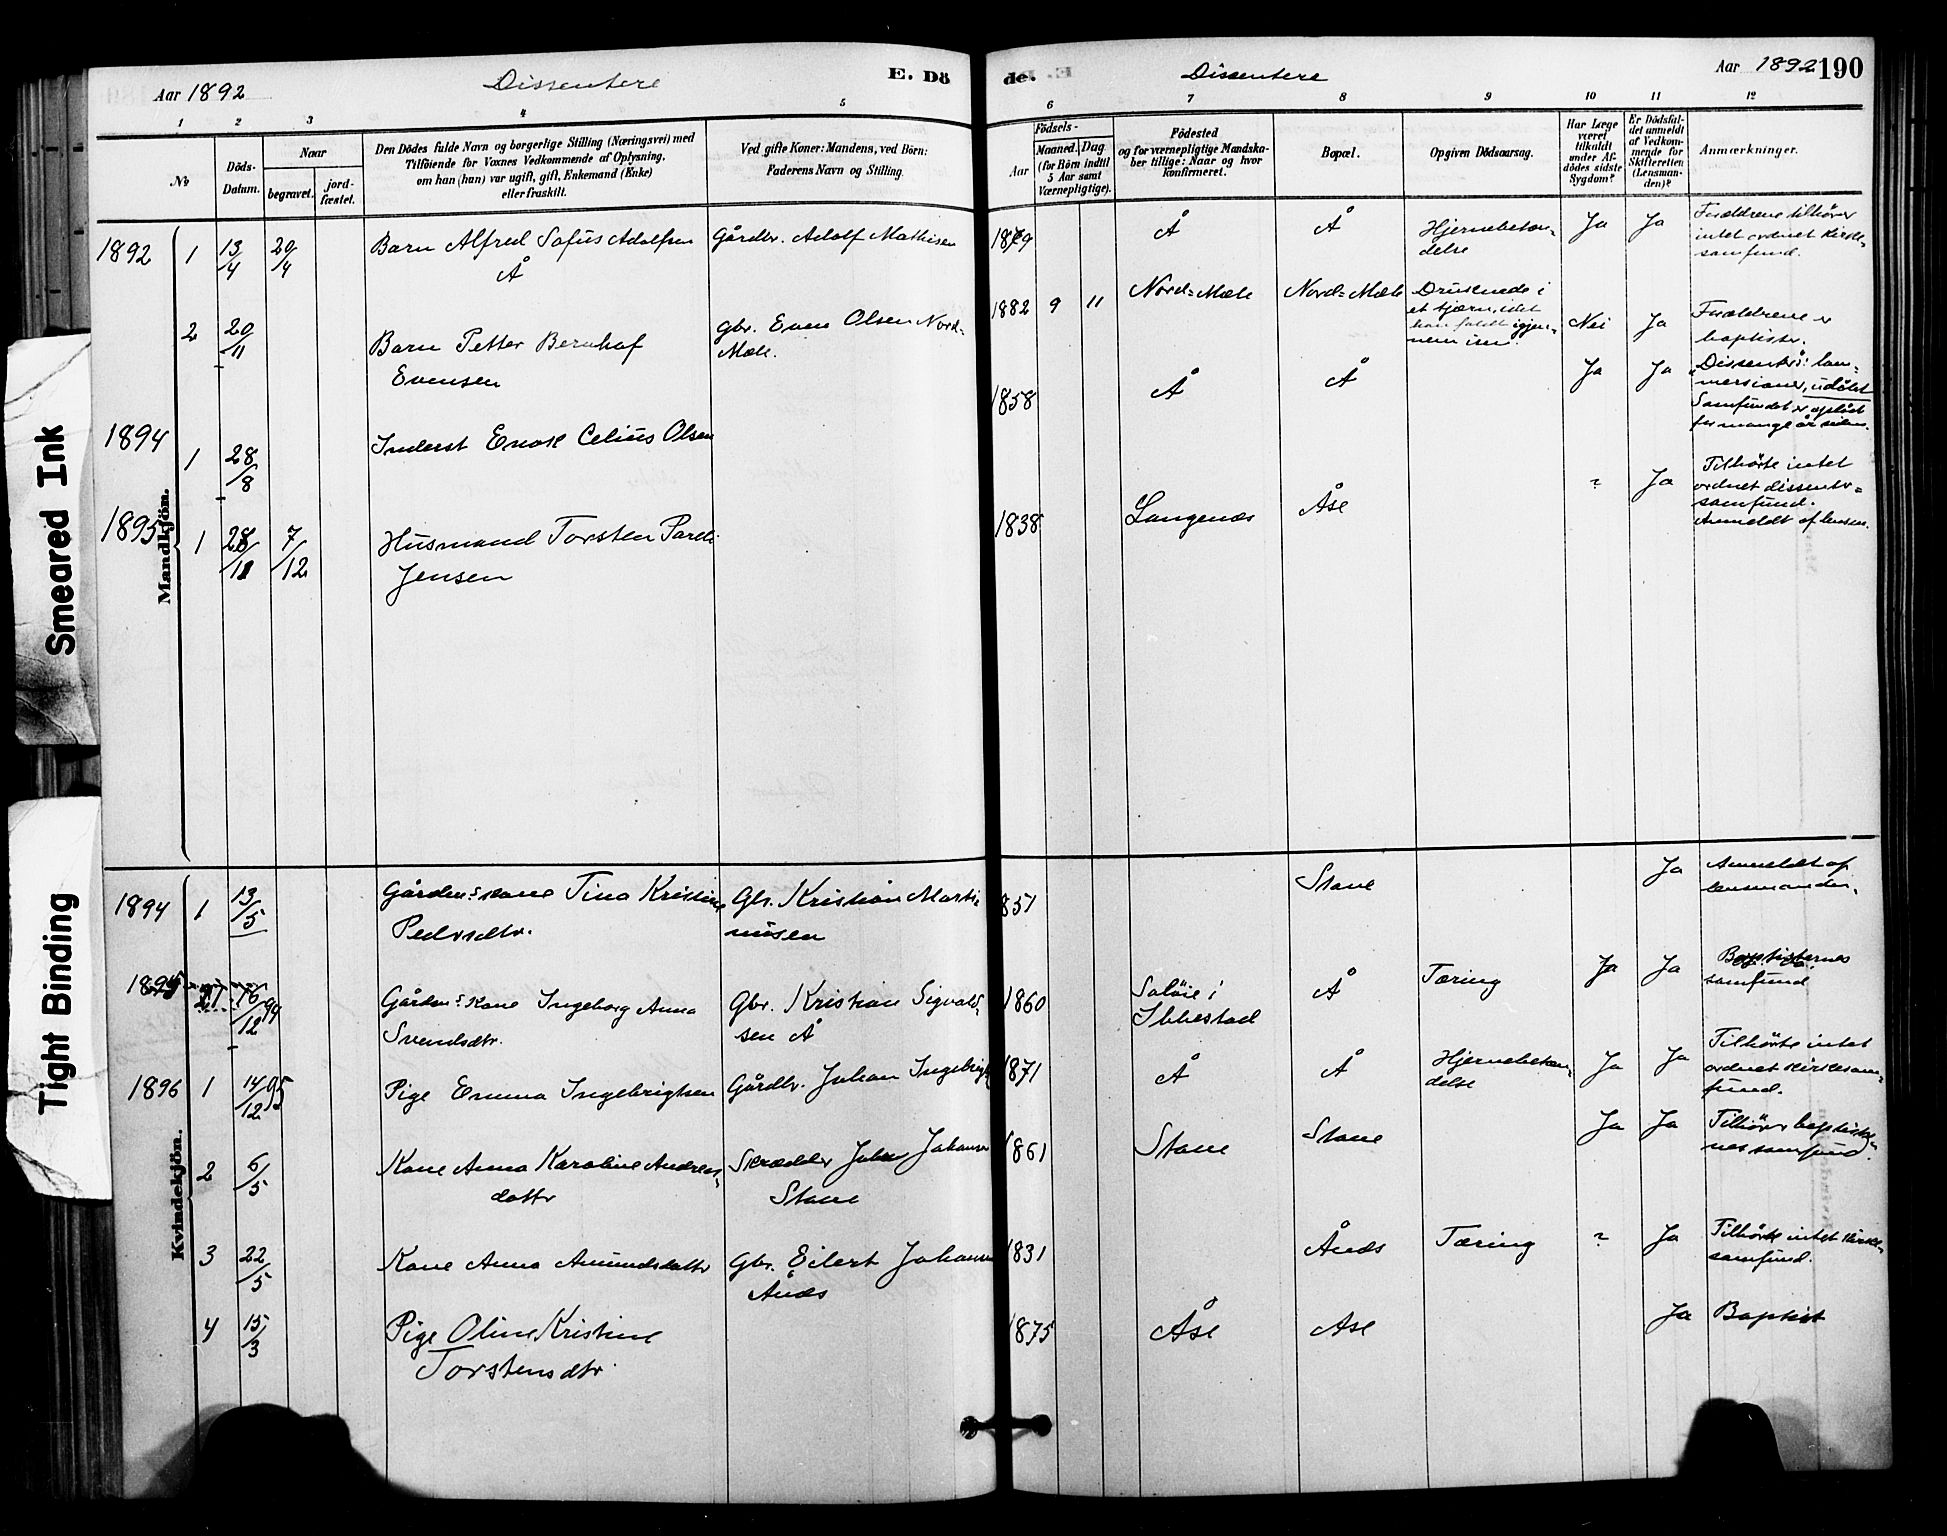 Smeared Ink
Tight Binding
Aar 1892
Dissentere
E. Dö
de.
Dissentere
Aar 1892 190
1 2 3 4 5
6 7 8 9 10 11 12
No
Döds-
Datum.
Naar
begravet.
jord-
fæstet.
Den Dödes fulde Navn og borgerlige Stilling (Næringsvei) med
Tilföiende for Voxnes Vedkommende af Oplysning,
om han (hun) var ugift, gift, Enkemand (Enke)
eller fraskilt.
Ved gifte Koner: Mandens, ved Börn:
Faderens Navn og Stilling.
Födsels-
Aar
Maaned. Dag
(for Börn indtil
5 Aar samt
Værnepligtige).
Födested
og for værnepligtige Mandska-
ber tillige: Naar og hvor
konfirmeret.
Bopæl.
Opgiven Dödsaarsag.
Har Læge
været
tilkaldt
under Af-
dödes sidste
Sygdom?
Er Dödsfal-
det anmeldt
af Vedkom-
mende for
Skifteretten
(Lensman-
den)?
Anmærkninger.
Mandkjön.
1892 1 13/4 20/4 Barn Alfred Sofus Adolfsen
Å
Gårdbr. Adolf Mathisen
Å Å Hjernebeton-
delse
Ja Ja Forældrene tilhörer
intet ordnet kirke-
samfund.
2 20/11 Barn Petter Bernhof
Evensen
Gbr. Even Olsen Nord-
Mæle.
1882 9 11 Nord-Mæle Nord-Mæle Druknede i
et tjærn, idet
han faldt igjen-
nem isen.
Nei Ja Forældrene er
baptister.
1894 1 28/8 Inderst Enok Celius Olsen
1858 Å Å Ja Ja
Samfundet er oplöst
for mange år siden.
1895 1 28/11 7/12 Husmand Torsten
Jensen
1838 Langenæs Åse ? Ja Tilhörte intet
ordnet dissenter-
samfund.
Anmeldt af lensm.
Kvindekjön.
1894 1 13/5 Gårdm.s kone Tina Kristine
Pedersdtr.
Gbr. Kristian Marti-
nusen
1851 Stane Ja Anmeldt af
lensmanden.
1895 16/12 94 Gårdm.s kone Ingeborg Anna
Svendsdtr.
Gbr. Kristian Sigvald-
sen Å
1860 Salöie i
Ibbestad
Å Tæring Ja Ja Baptisternes
samfund
1896 1 14/12 95 Pige Emma Ingebrigtsen
Gårdbr. Johan Ingebrigt
1871 Å Å Hjernebetæn-
delse
Ja Ja Tilhörte intet
ordnet kirkesam-
fund.
2 6/5 Kone Anna Karoline Andreas-
dattr
Skrædder Johan Johansen
Stane
1861 Stane Stane Ja Ja Tilhörer baptister-
nes samfund.
3 22/5 Kone Anna Amundsdattr
Gbr. Eilert Johansen
Ånds
1831 Ånds Tæring ? Ja Tilhörte intet kirke-
samfund.
4 15/3 Pige Oline Kristine
Torstensdtr.
1875 Åse Åse Ja Baptist